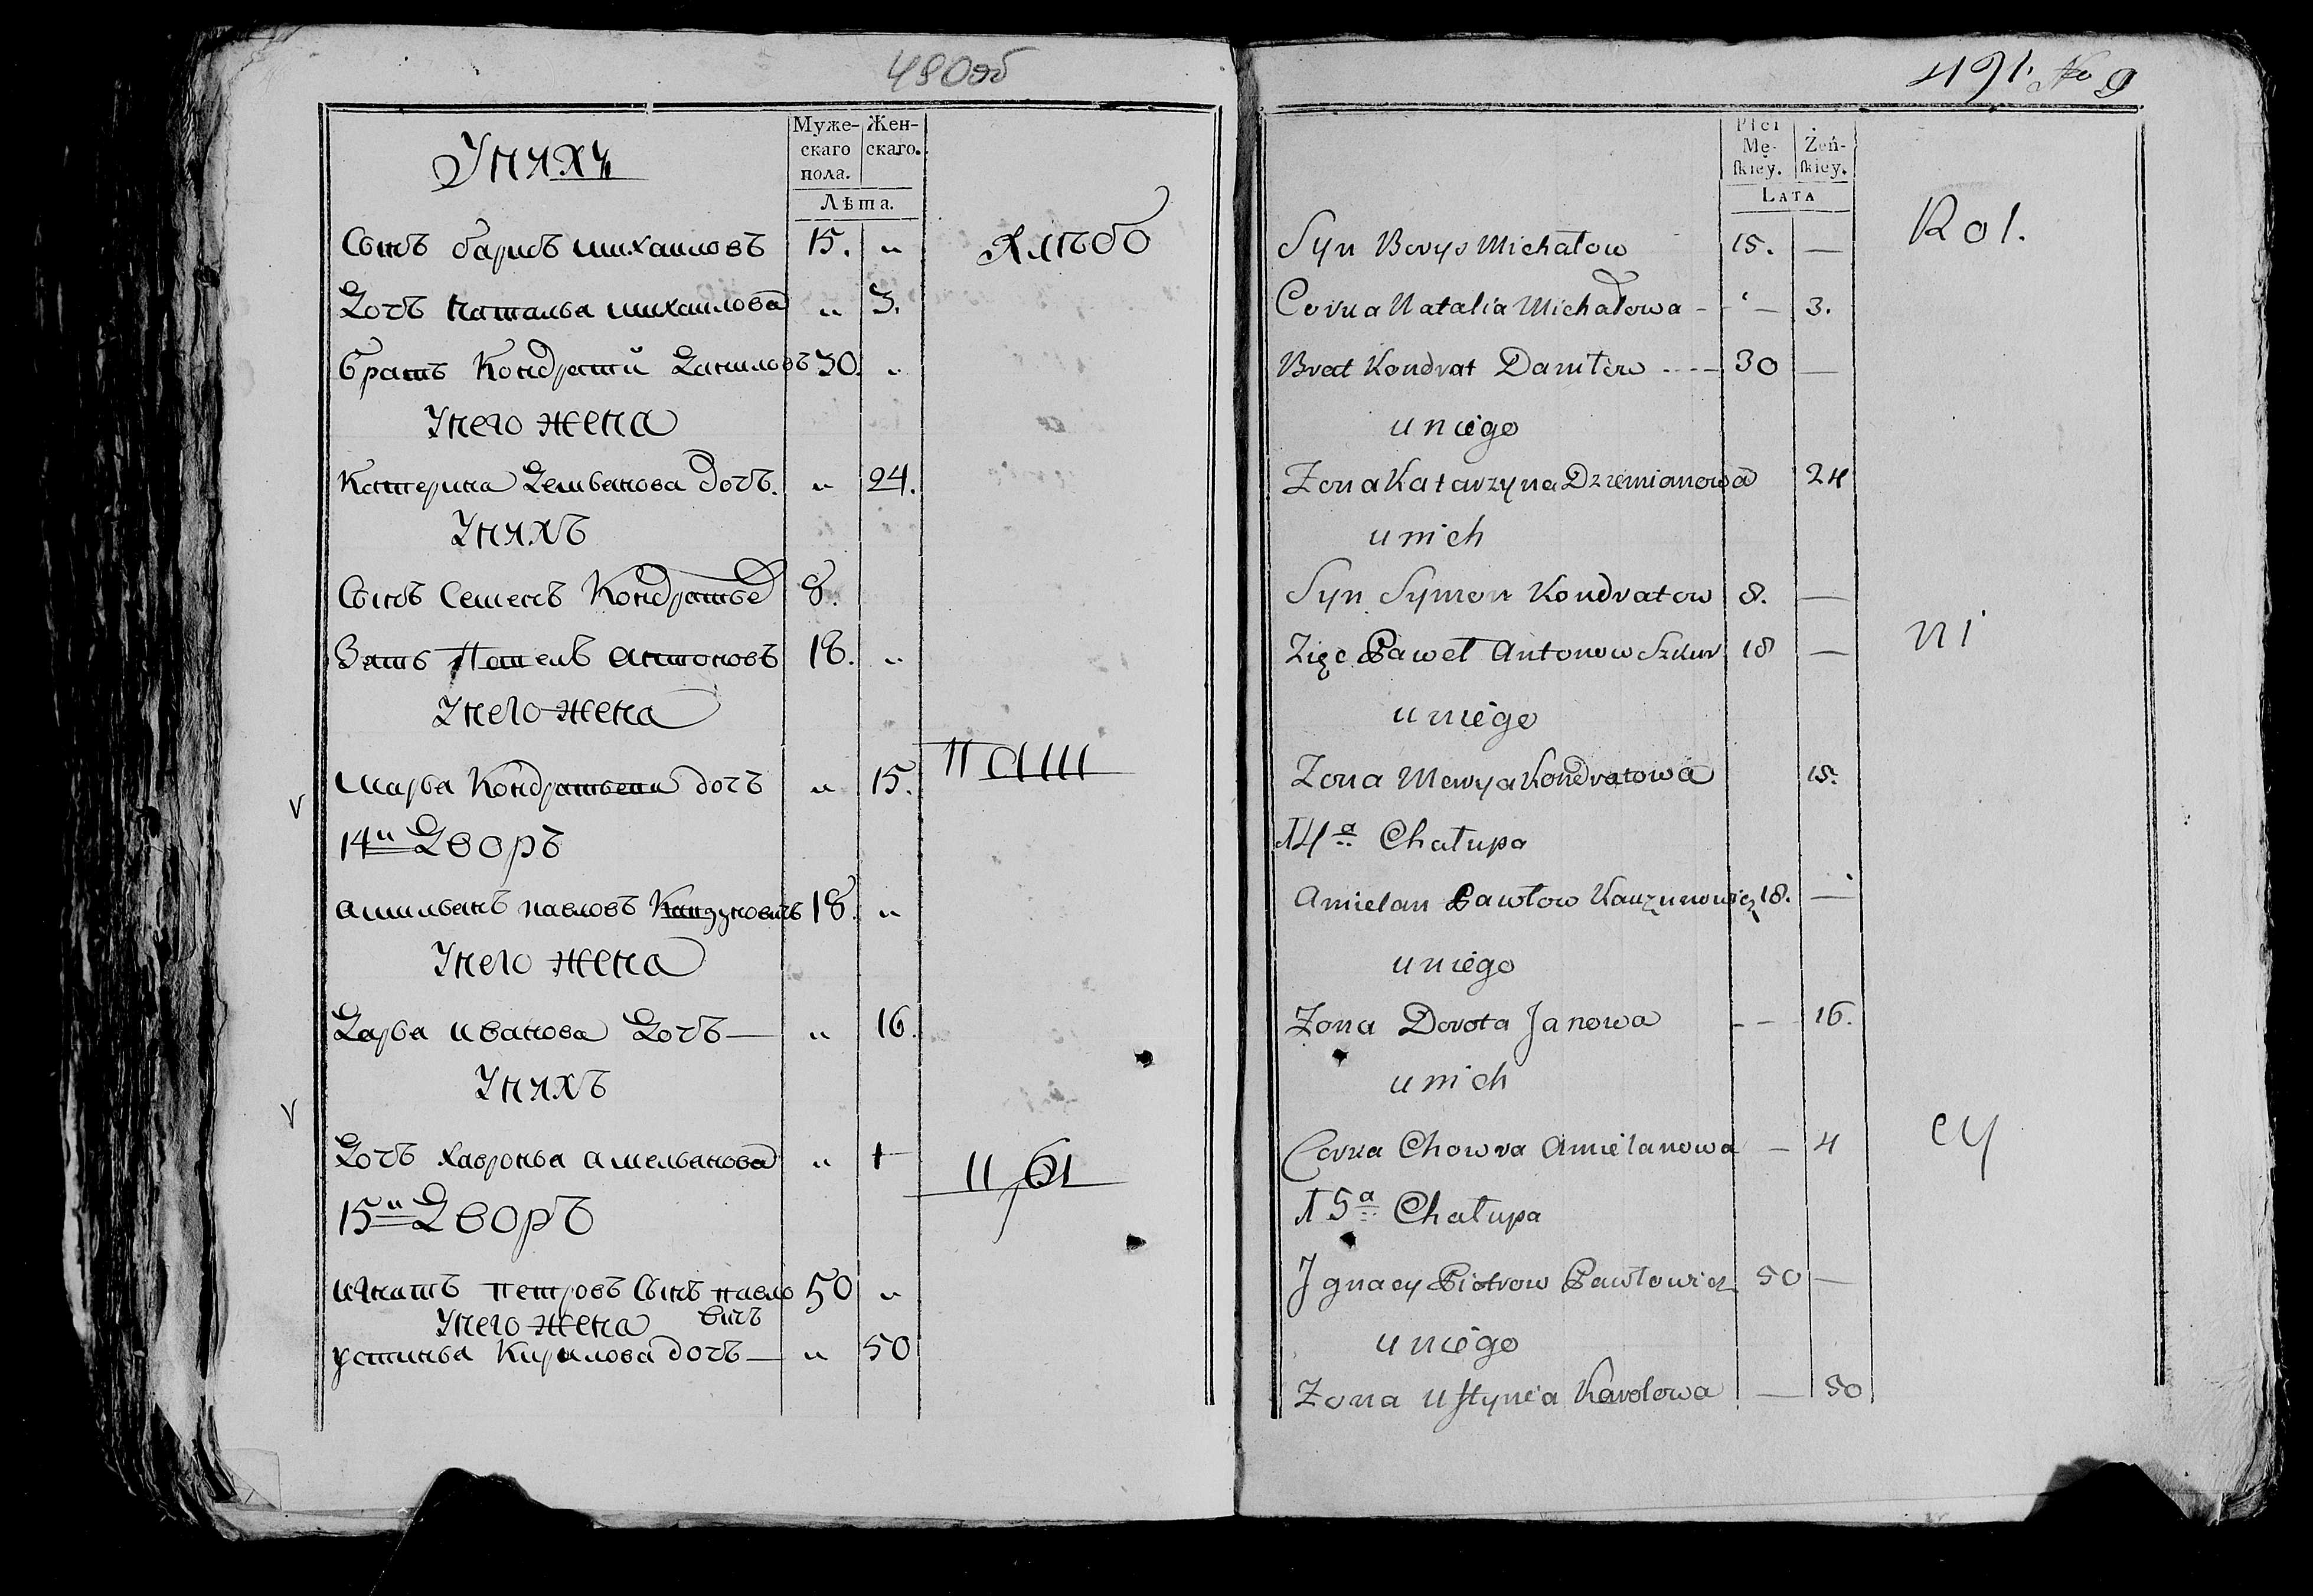 490об
Унихъ
Муже-
скаго
пола.
Жен-
скаго.
Лѣта.
Сынъ барисъ михаиловъ 15. „
Дочъ наталья михаилова „ 3.
братъ Кондратий Даниловъ 30. „
Унего жена
Катерина Демьянова дочъ. „ 24.
Унихъ
Сынъ Семенъ Кондратье 8.
Зять Павелъ антоновъ 18. „
Унего жена
марья Кондратьева дочъ „ 15.
14и Дворъ
амильянъ павловъ 18. „
Унего жена
Дарья иванова Дочъ — „ 16.
Унихъ
Дочъ хавронья амельянова „ 4
15и Дворъ
игнатъ петровъ сынъ павло 50 „
вичъ
Унего жена
устинья Кирилова дочъ — „ 50
Хлѣбо
паш
цы
491. No 9
Płci
Mę-
ſkiey.
Żeń-
ſkiey.
LATA
Syn Borys Michałow 15. —
Corka Natalia Michałowa - - — 3.
Brat Kondrat Daniłow - - - - 30 —
u niego
Zona Katarzyna Dziemianowa 24
u nich
Syn Symon Kondratow 8. —
Zięc Paweł Antonow Szkur 18 —
u niego
Zona Marya Kondratowa 15.
14a Chałupa
Amielan Pawłow Kauzunowicz 18. —
u niego
Zona Dorota Janowa - — 16.
u nich
Corka Chowra Amielanowa — 4
15a Chałupa
Jgnacy Piotrow Pawłowicz 50 —
u niego
Zona Uſtynia Karolowa — 50
Rol.
ni
cy